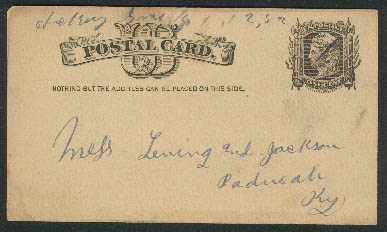 POSTAL CARD.
NOTHING BUT THE ADDRESS CAN BE PLACED ON THIS SIDE.
Mess- Lening and Jackson
Paducah
Ky